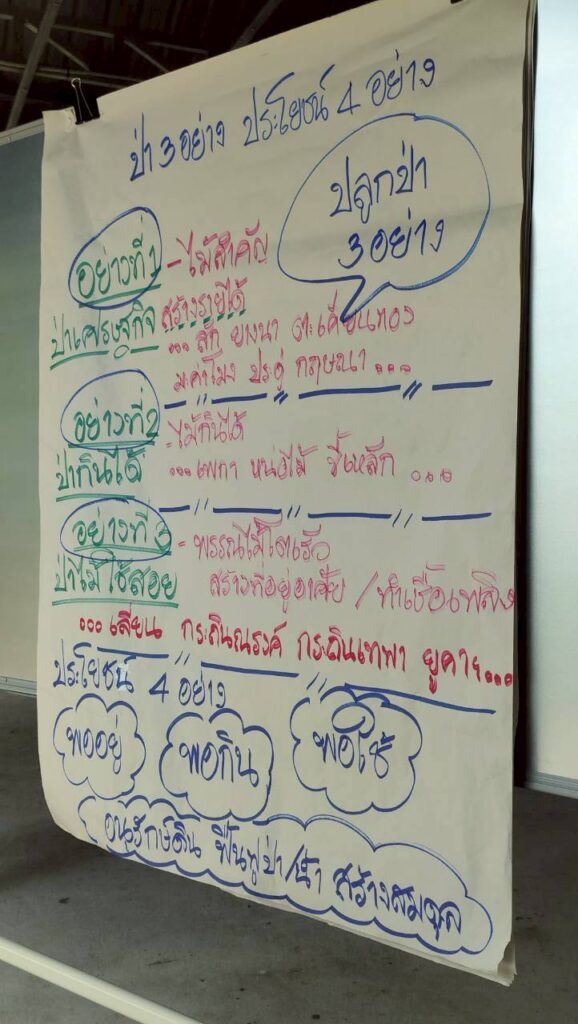 ป่า 3 อย่าง ประโยชน์ 4 อย่าง
ปลูกป่า
3 อย่าง
อย่างที่ 1 - ไม้สำคัญ
ป่าเศรษฐกิจ สร้างรายได้
... สัก ยางนา ตะเคียนทอง
มะค่าโมง ประดู่ กฤษณา ...
อย่างที่ 2 - ไม้กินได้
ป่ากินได้ ... เพกา หน่อไม้ ขี้เหล็ก ...
อย่างที่ 3 - พรรณไม้โตเร็ว
ป่าไม้ใช้สอย สร้างที่อยู่อาศัย / ทำเชื้อเพลิง
... เลี่ยน กระถินณรงค์ กระถินเทพา ยูคาฯ...
ประโยชน์ 4 อย่าง
พออยู่ พอกิน พอใช้
อนุรักษ์ดิน ฟื้นฟูป่า/น้ำ สร้างสมดุล